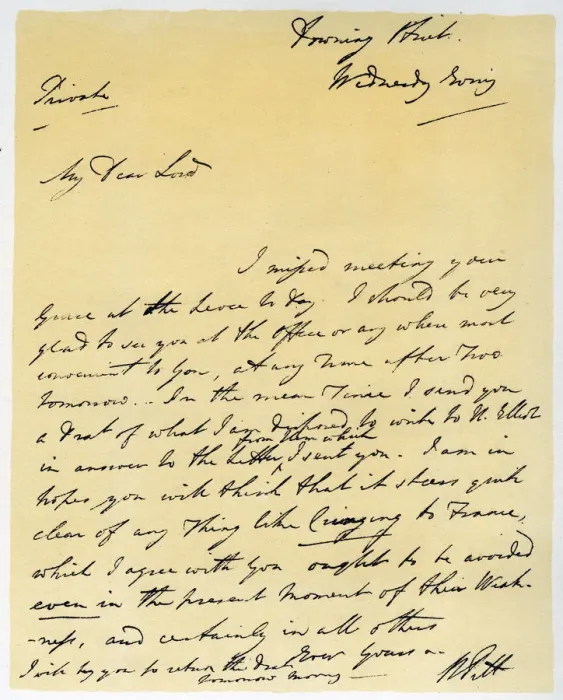 Downing Street.
Wednesday Eving
Private
My Dear Lord
I missed meeting your
Grace at the Levee to Day. I should be very
glad to see you at the office or any where most
convenient to you, at any Time after Two
tomorrow.. In the mean Time I send you
a Drat of what I am disposed to write to H. Elliot
from him which
in answer to the Letter I sent you. I am in
hopes you will think that it steers quite
clear of any Thing like Cringing to France,
which I agree with you ought to be avoided
even in the present Moment of their Weak-
-ness, and certainly in all others
Ever Yours
W Pitt
I will beg you to return the Drat
tomorrow morng